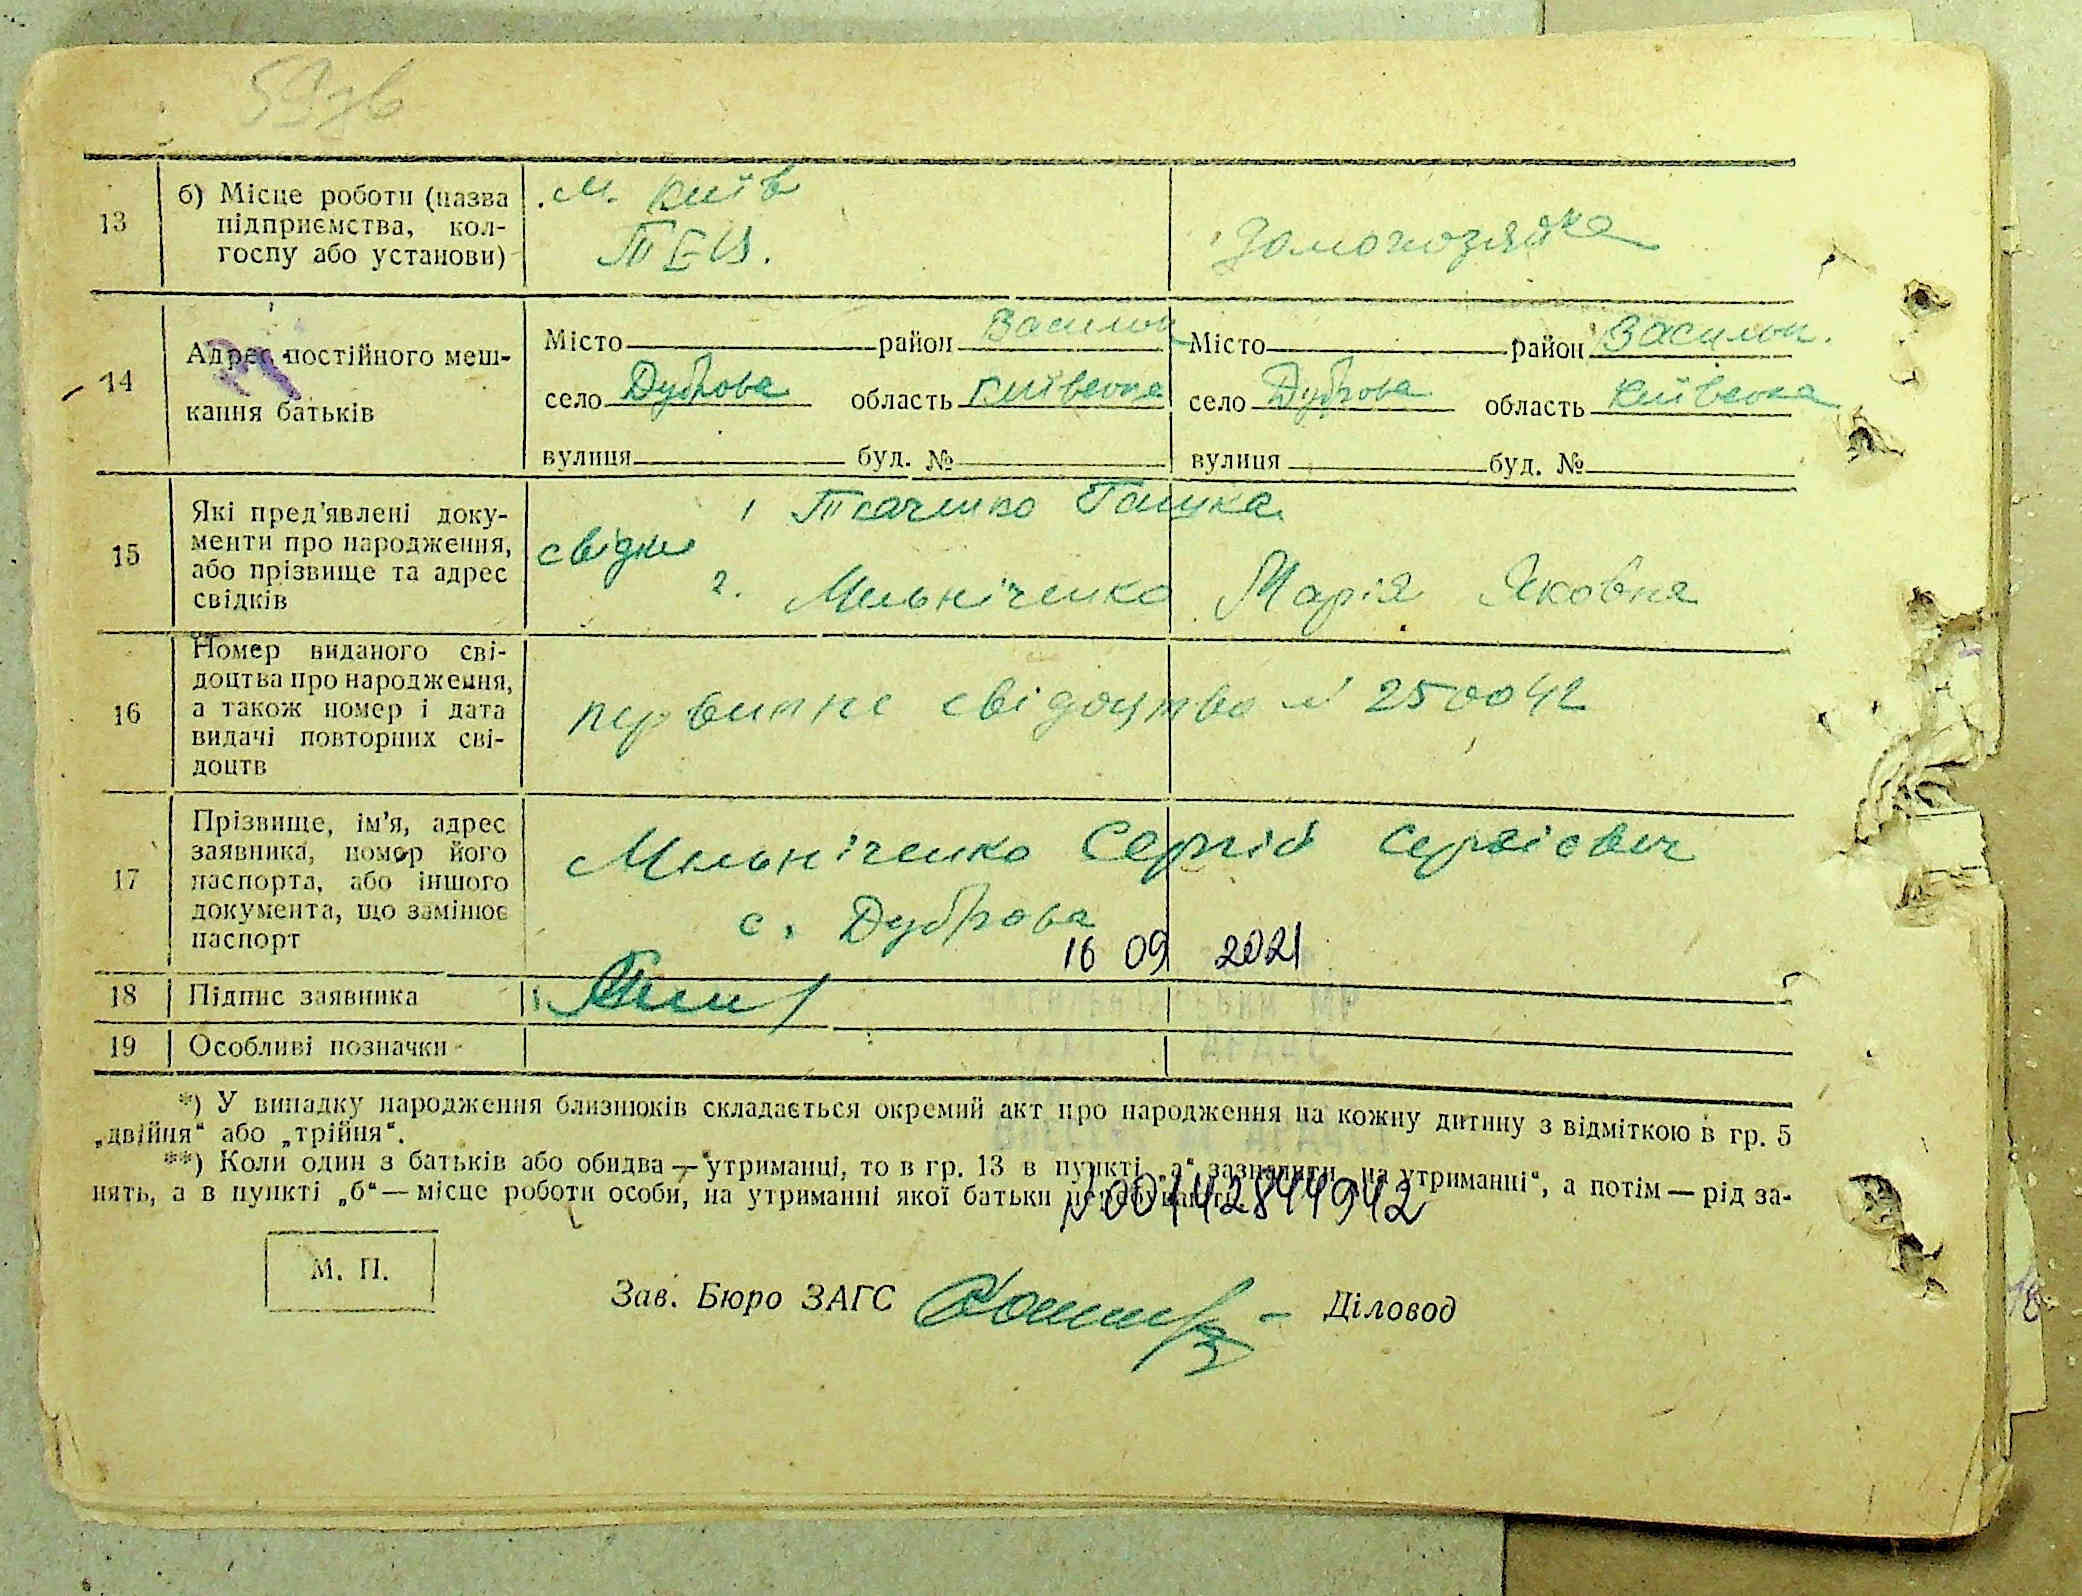 59зв
13
б) Місце роботи (назва
підприємства, кол-
госпу або установи)
м. Київ
ТЕЦ.
Домохозяйка
14
Адрес постійного меш-
кання батьків
Місто район Васильк
село Дуброва область Київська
вулиця буд. №
Місто район Васильк.
село Дуброва область Київська
вулиця буд. №
15
Які пред'явлені доку-
менти про народження,
або прізвище та адрес
свідків
свідки
1 Ткаченко Ганна
2. Мельніченко Марія Яковна
16
Номер виданого сві-
доцтва про народження,
а також номер і дата
видачі повторних сві-
доцтв
первинне свідоцтво № 250042
17
Прізвище, ім'я, адрес
заявника, номер його
паспорта, або іншого
документа, що замінює
паспорт
Мельніченко Сергій Сергієвич
с. Дуброва
16 09 2021
18 Підпис заявника
19 Особливі позначки
*) У випадку народження близнюків складається окремий акт про народження на кожну дитину з відміткою в гр. 5
„двійня“ або „трійня“.
**) Коли один з батьків або обидва — утриманці, то в гр. 13 в пункті „а“ зазначити „на утриманні“, а потім — рід за-
нять, а в пункті „б“ — місце роботи особи, на утриманні якої батьки
№ 00142844942
М. П.
Зав. Бюро ЗАГС Діловод
18